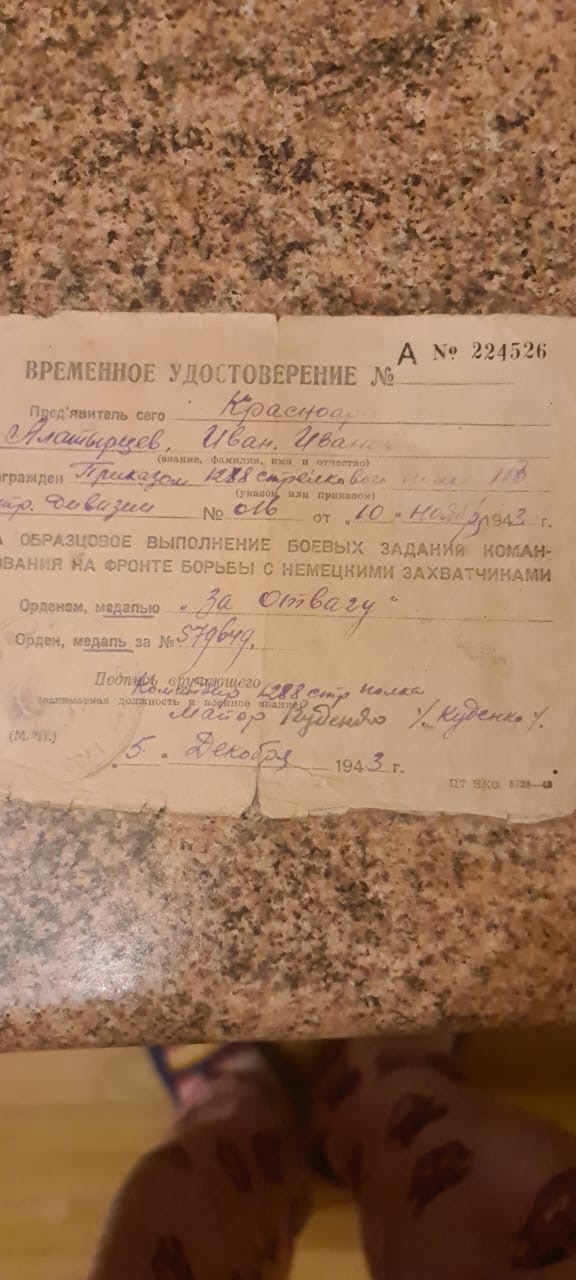 А № 224526
ВРЕМЕННОЕ УДОСТОВЕРЕНИЕ №
Пред'явитель сего Красноар
Алатырцев, Иван, Ивано
(звание, фамилия, имя и отчество)
агражден Приказом 1288 стрелкового полка 113
(указом или приказом)
стр. Дивизии № 016 от "10" Ноября 1943 г.
А ОБРАЗЦОВОЕ ВЫПОЛНЕНИЕ БОЕВЫХ ЗАДАНИЙ КОМАН-
ОВАНИЯ НА ФРОНТЕ БОРЬБЫ С НЕМЕЦКИМИ ЗАХВАТЧИКАМИ
Орденом, медалью "За отвагу"
Орден, медаль за №
Подпись вручающего
Командир 1288 стр полка
(занимаемая должность и военное звание)
Майор /Куденко/.
(М. П.)
"5" Декабря 1943 г.
ЦТ НКО.